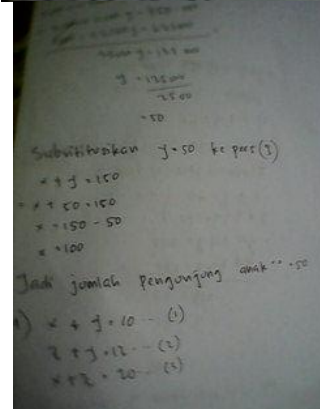 y = 125000
2500
= 50
Substitusikan y = 50 ke pers (1)
x + y = 150
= x + 50 = 150
x = 150 - 50
x = 100
Jadi jumlah pengunjung anak" = 50
x + y = 10 ... (1)
z + y = 12 ... (2)
x + z = 20 ... (3)